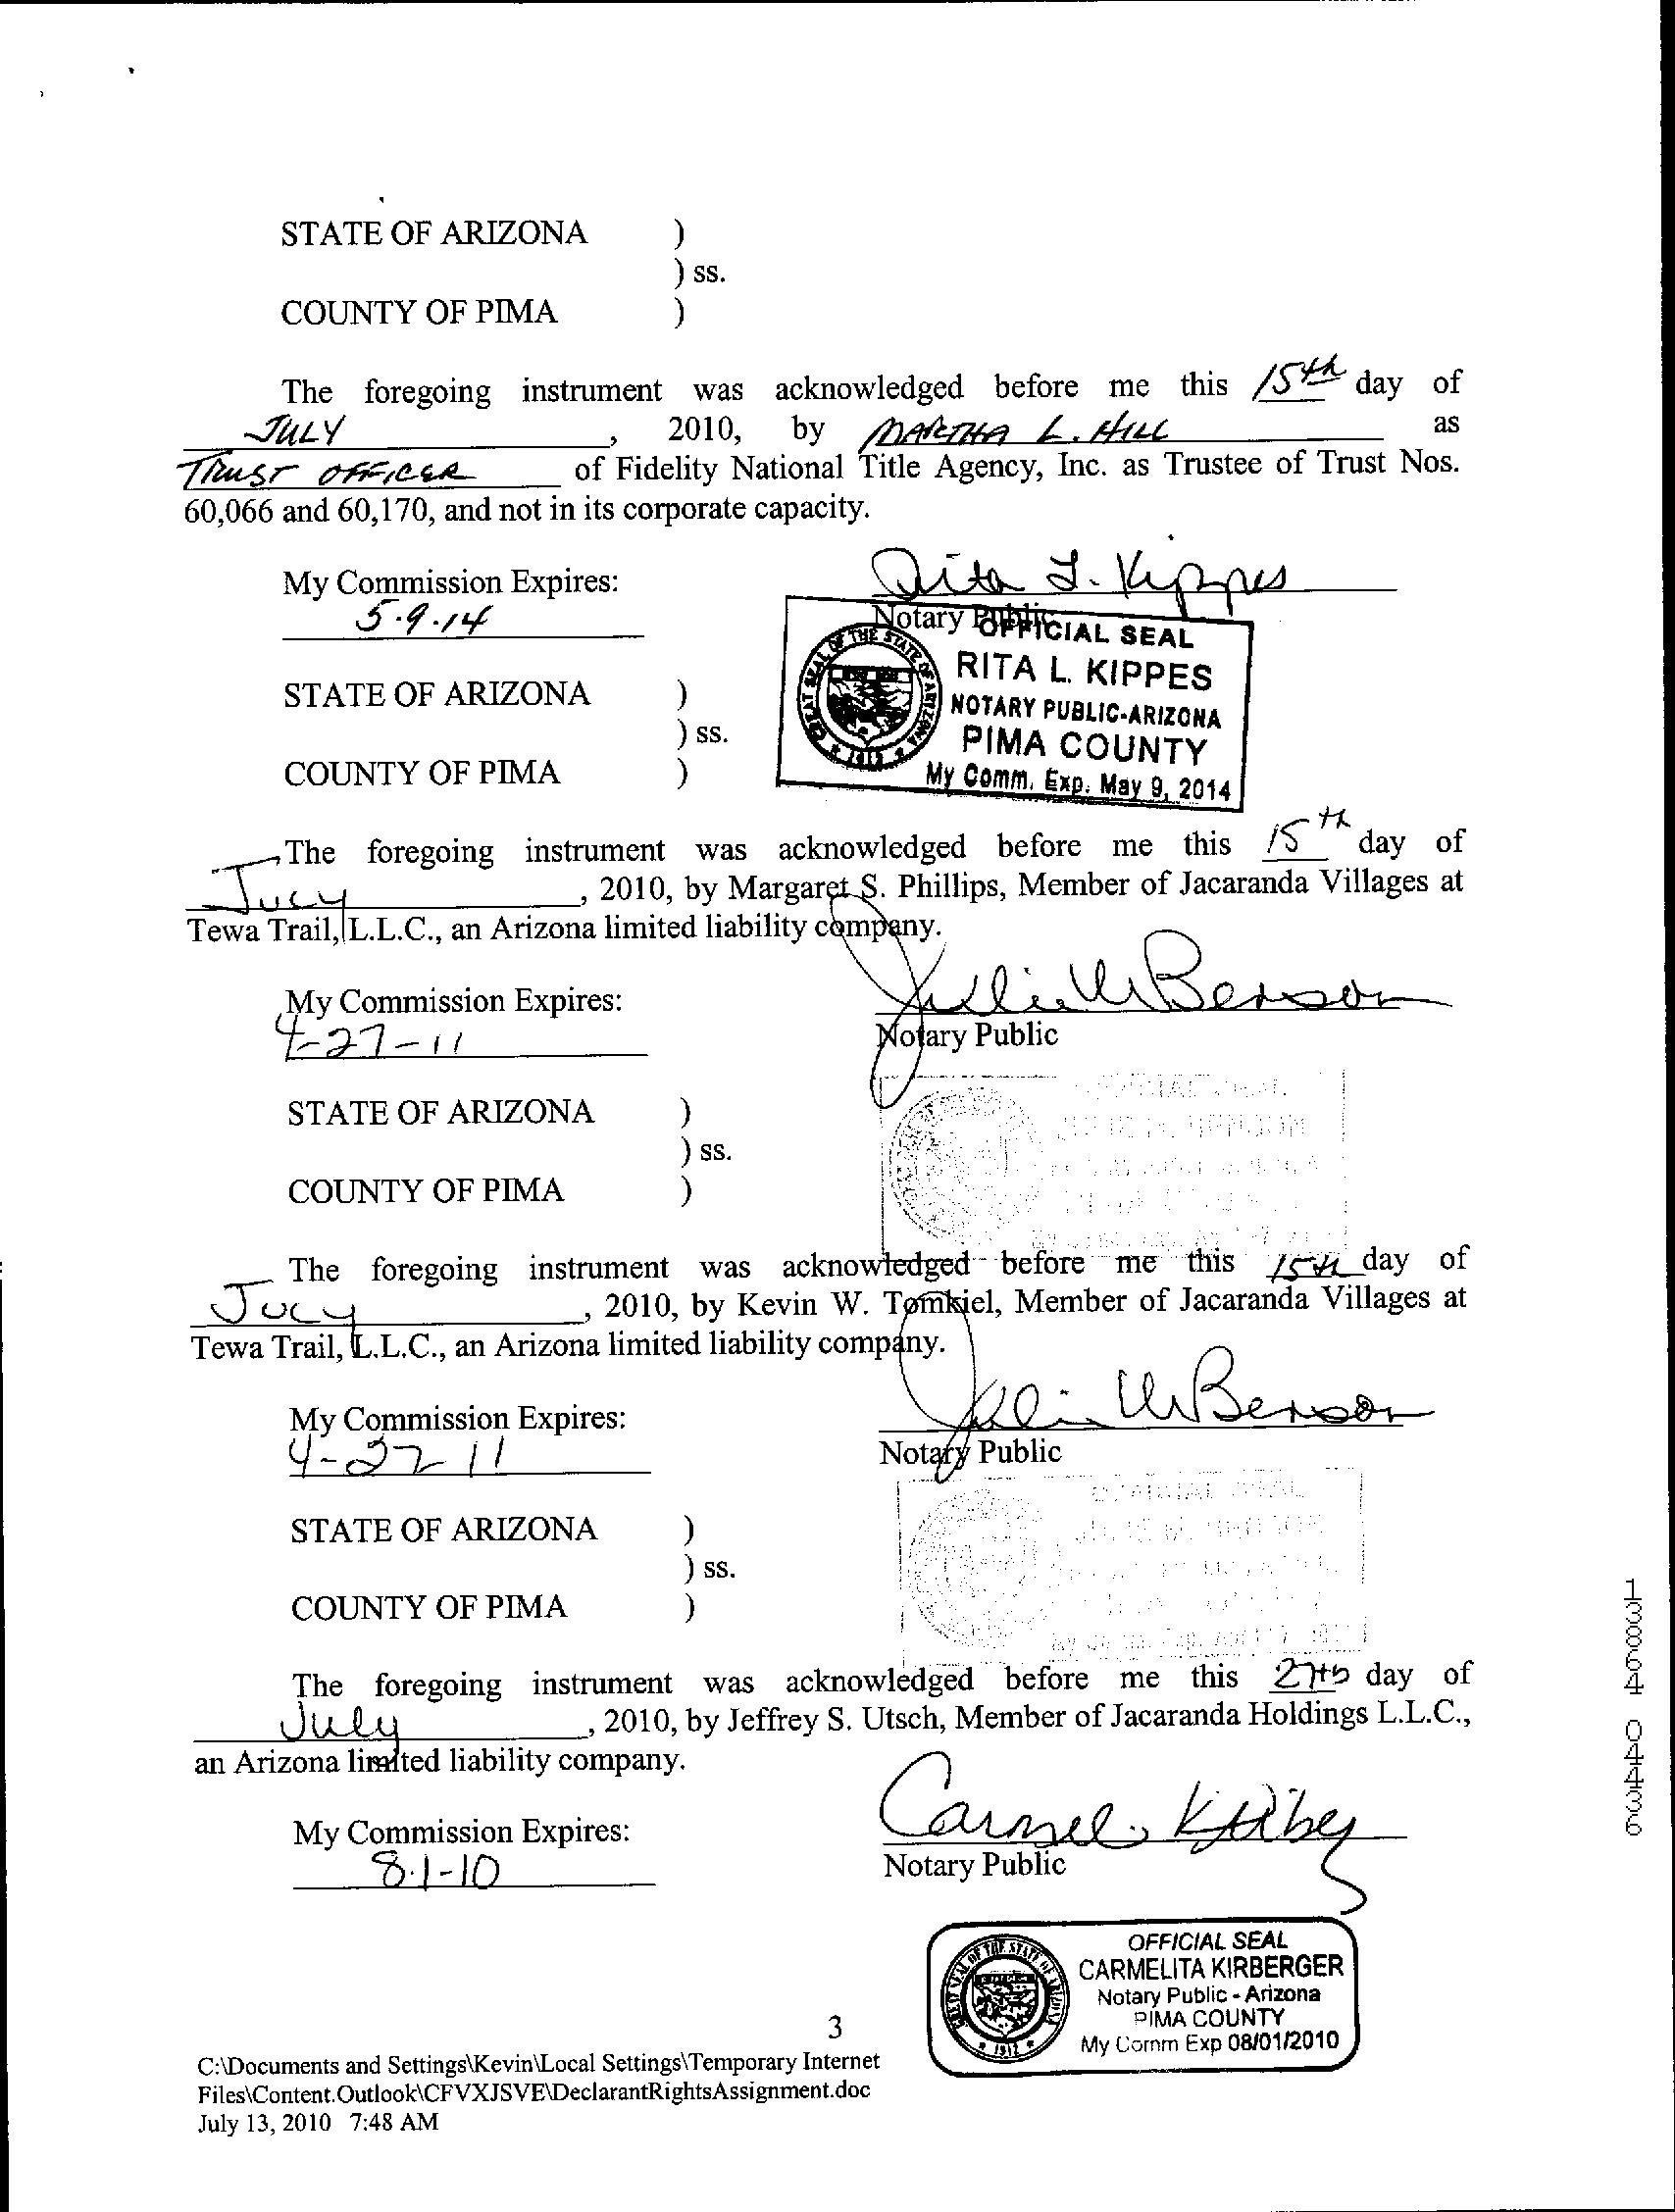 STATE OF ARIZONA )
) ss.
COUNTY OF PIMA )
The foregoing instrument was acknowledged before me this 15th day of
JULY, 2010, by MARTHA L. HILL as
TRUST OFFICER of Fidelity National Title Agency, Inc. as Trustee of Trust Nos.
60,066 and 60,170, and not in its corporate capacity.
Rita L. Kippes
My Commission Expires:
Notary Public
5.9.14
OFFICIAL SEAL
RITA L. KIPPES
NOTARY PUBLIC-ARIZONA
PIMA COUNTY
My Comm. Exp. May 9, 2014
GREAT SEAL OF THE STATE OF ARIZONA
1912
STATE OF ARIZONA )
) ss.
COUNTY OF PIMA )
The foregoing instrument was acknowledged before me this 15th day of
July, 2010, by Margaret S. Phillips, Member of Jacaranda Villages at
Tewa Trail, L.L.C., an Arizona limited liability company.
Julie M Benson
My Commission Expires:
Notary Public
4-27-11
STATE OF ARIZONA )
) ss.
COUNTY OF PIMA )
The foregoing instrument was acknowledged before me this 15th day of
July, 2010, by Kevin W. Tomkiel, Member of Jacaranda Villages at
Tewa Trail, L.L.C., an Arizona limited liability company.
Julie M Benson
My Commission Expires:
Notary Public
4-27 11
STATE OF ARIZONA )
) ss.
COUNTY OF PIMA )
The foregoing instrument was acknowledged before me this 27th day of
July, 2010, by Jeffrey S. Utsch, Member of Jacaranda Holdings L.L.C.,
an Arizona limited liability company.
My Commission Expires:
Notary Public
8.1-10
OFFICIAL SEAL
CARMELITA KIRBERGER
Notary Public - Arizona
PIMA COUNTY
My Comm Exp 08/01/2010
GREAT SEAL OF THE STATE OF ARIZONA
1912
3
C:\Documents and Settings\Kevin\Local Settings\Temporary Internet
Files\Content.Outlook\CFVXJSVE\DeclarantRightsAssignment.doc
July 13, 2010 7:48 AM
13864 04436